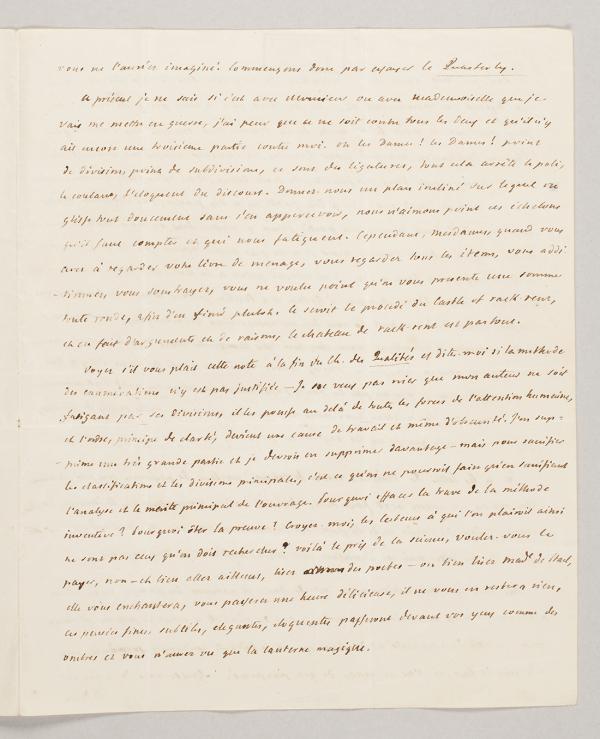 vous ne l'auriés imaginé. Commençons donc par essayer le Quarterly.
A présent je ne sais si c'est avec Monsieur ou avec Mademoiselle que je
vais me mettre en guerre, j'ai peur que ce ne soit contre tous les deux et qu'il n'y
ait encore une troisieme partie contre moi. oh les Dames! les Dames! point
de divisions, point de subdivisions, ce sont des ligatures, tout cela arrête le poli,
le coulant, l'eloquent du discours. Donnez-nous un plan incliné sur lequel on
glisse tout doucement sans s'en appercevoir, nous n'aimons point ces échelons
qu'il faut compter et qui nous fatiguent. Cependant, mesdames, quand vous
avez à regarder votre livre de menage, vous regardez tous les items, vous addi
-tionnez, vous soustrayez, vous ne voulez point qu'on vous presente une somme
toute ronde, afin d'en finir plutot. ce seroit le procédé du Castle of rack rent,
et en fait d'arguments et de raisons, le chateau de rack-rent est partout.
Voyez s'il vous plait cette note à la fin du Ch. des Qualités et dite-moi si la méthode
des enumérations n'y est pas justifiée — Je ne veux pas nier que mon auteur ne soit
fatigant par ses divisions, il les pousse au delà de toutes les forces de l'attention humaine,
et l'ordre, principe de clarté, devient une cause de travail et même d'obscurité. J'en sup=
-prime une très grande partie et je devrois en supprimer davantage — mais pour sacrifier
les classifications et les divisions principales, c'est ce qu'on ne pourroit faire qu'en sacrifiant
l'analyse et le mérite principal de l'ouvrage. Pourquoi effacer la trace de la méthode
inventive? Pourquoi ôter la preuve? Croyez-moi, les lecteurs à qui l'on plairoit ainsi
ne sont pas ceux qu'on doit rechercher? voilà le prix de la science, voulez-vous le
payer, non — eh bien allez ailleurs, lisez des poetes — ou bien lisez Mad. de Stael,
elle vous enchantera, vous passerez une heure délicieuse, il ne vous en restera rien,
ces pensées fines, subtiles, elegantes, eloquentes passeront devant vos yeux comme des
ombres et vous n'aurez vu que la lanterne magique.